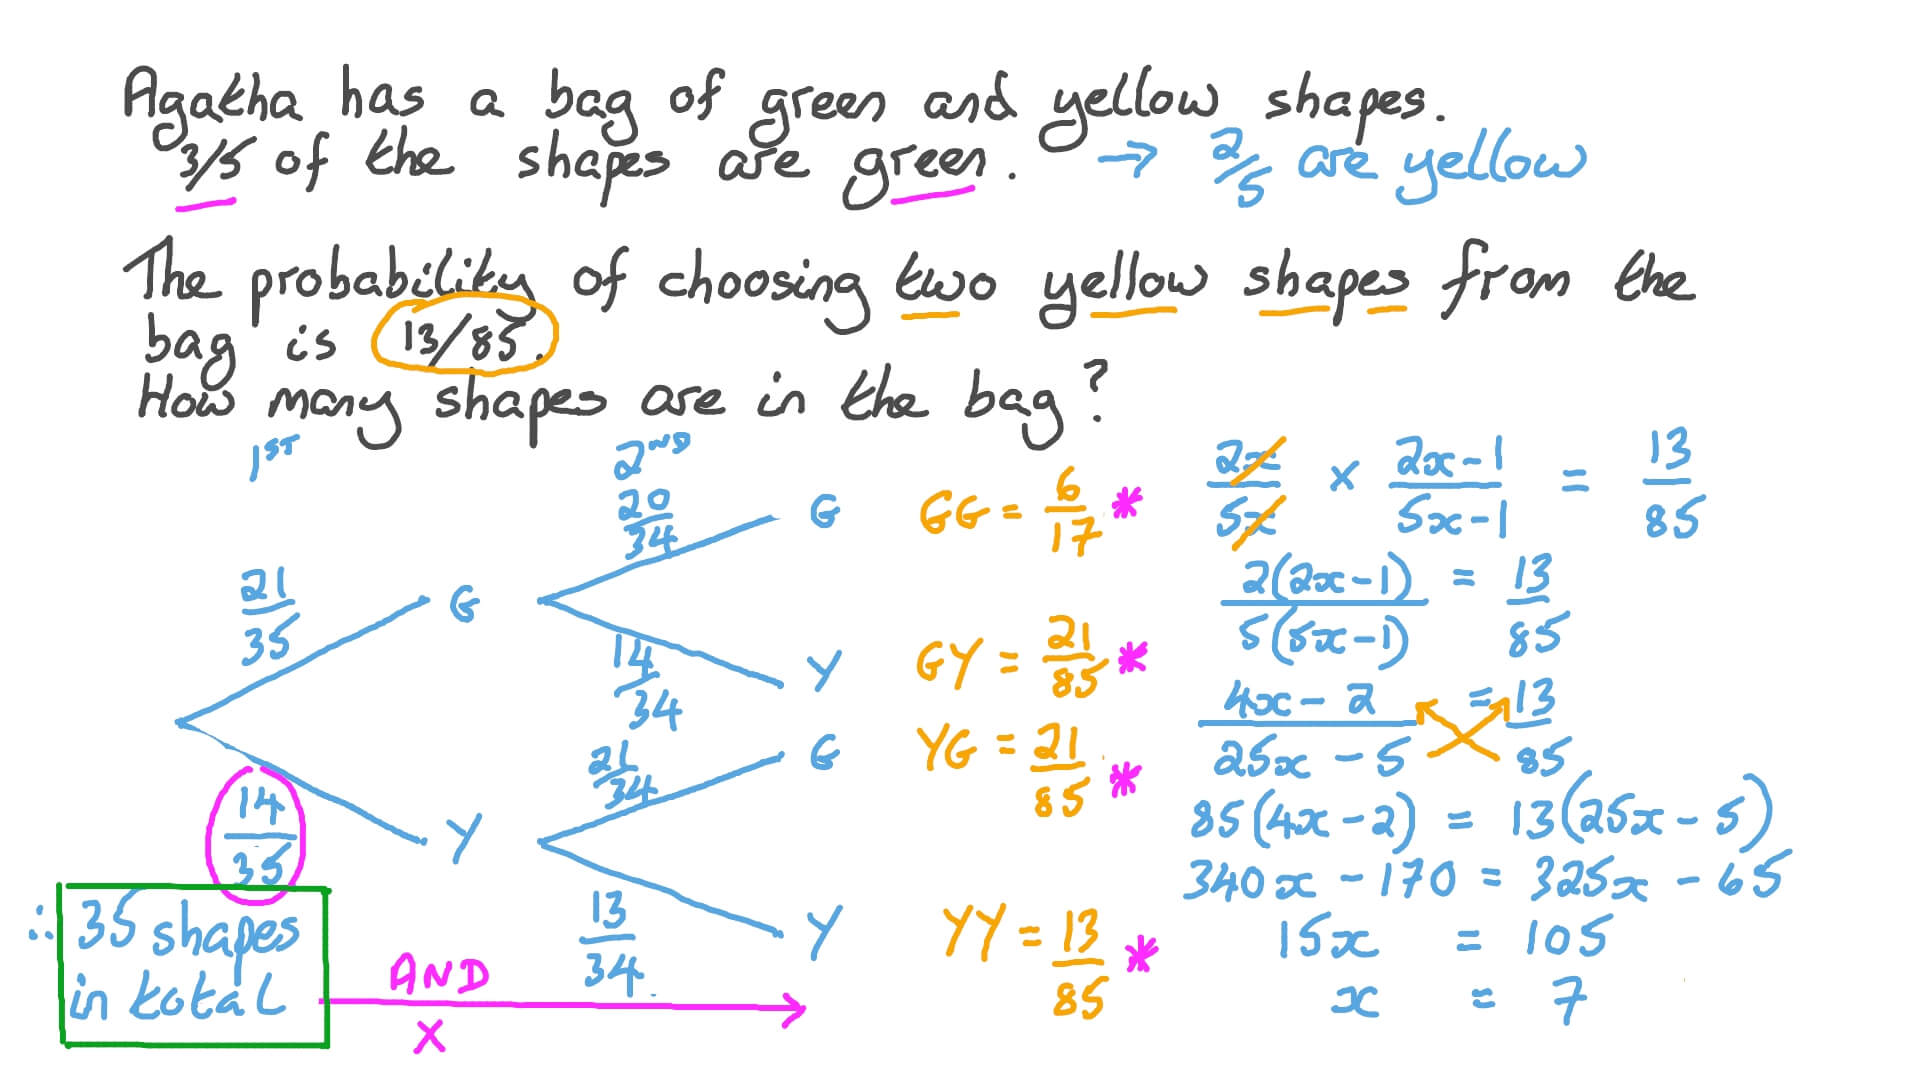 Agatha has a bag of green and yellow shapes.
3/5 of the shapes are green. → 2/5 are yellow
The probability of choosing two yellow shapes from the
bag is 13/85.
How many shapes are in the bag?
1ST
2ND
21/35
G
20/34
G
GG = 6/17 *
14/34
Y
GY = 21/85 *
14/35
Y
21/34
G
YG = 21/85 *
13/34
Y
YY = 13/85 *
∴ 35 shapes
in total
AND
X
2x/5x × 2x-1/5x-1 = 13/85
2(2x-1)/5(5x-1) = 13/85
4x-2/25x-5 = 13/85
85(4x-2) = 13(25x-5)
340x-170 = 325x-65
15x = 105
x = 7